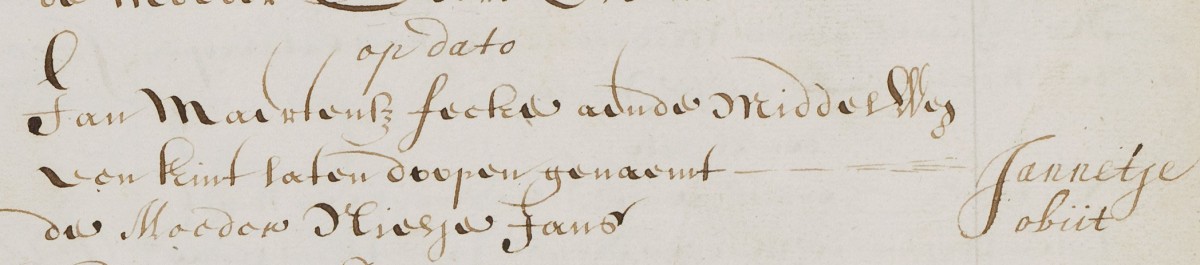 op dato
Jan Maertensz fecke aende Middel Weg
een kint laten doopen genaemt Jannetje
de Moeder Niesje Jans obiit